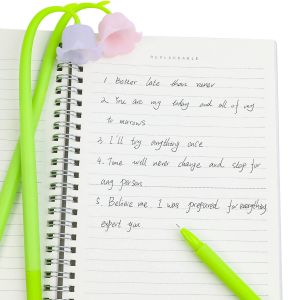 REPLACEABLE
1. Better late than never
2. You are my today and all of my
to marrows
3. I'll try anything once
4. Time will never change and stop for
any person
5. Believe me I was prepared for everything
expert you.